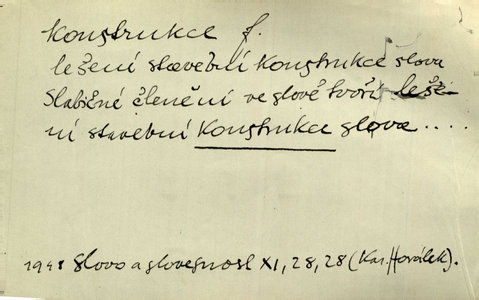 Konstrukce f.
lešení stavební konstrukce slova
Slabičné členění ve slově tvoří leše-
ní stavební konstrukce slova....
Slovo a slovesnost XI, 28, 28 (Kar. Horálek).